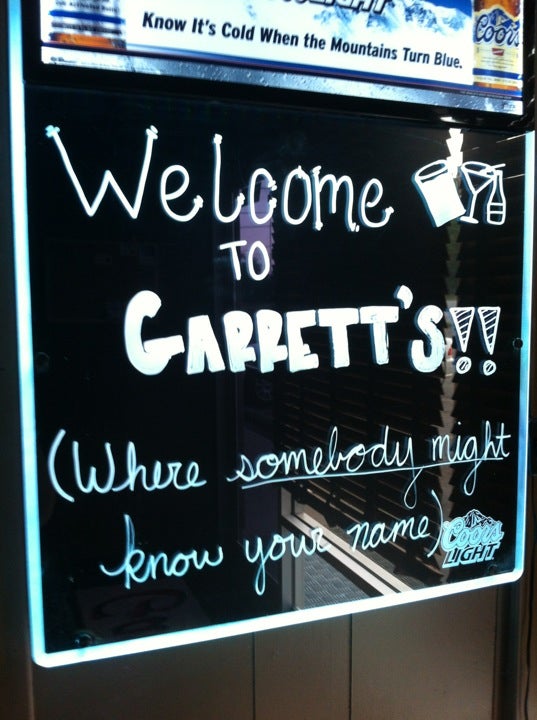 LIGHT
Know It's Cold When the Mountains Turn Blue.
Coors
Welcome
TO
GARRETT'S!!
(Where somebody might
know your name)
Coors
LIGHT